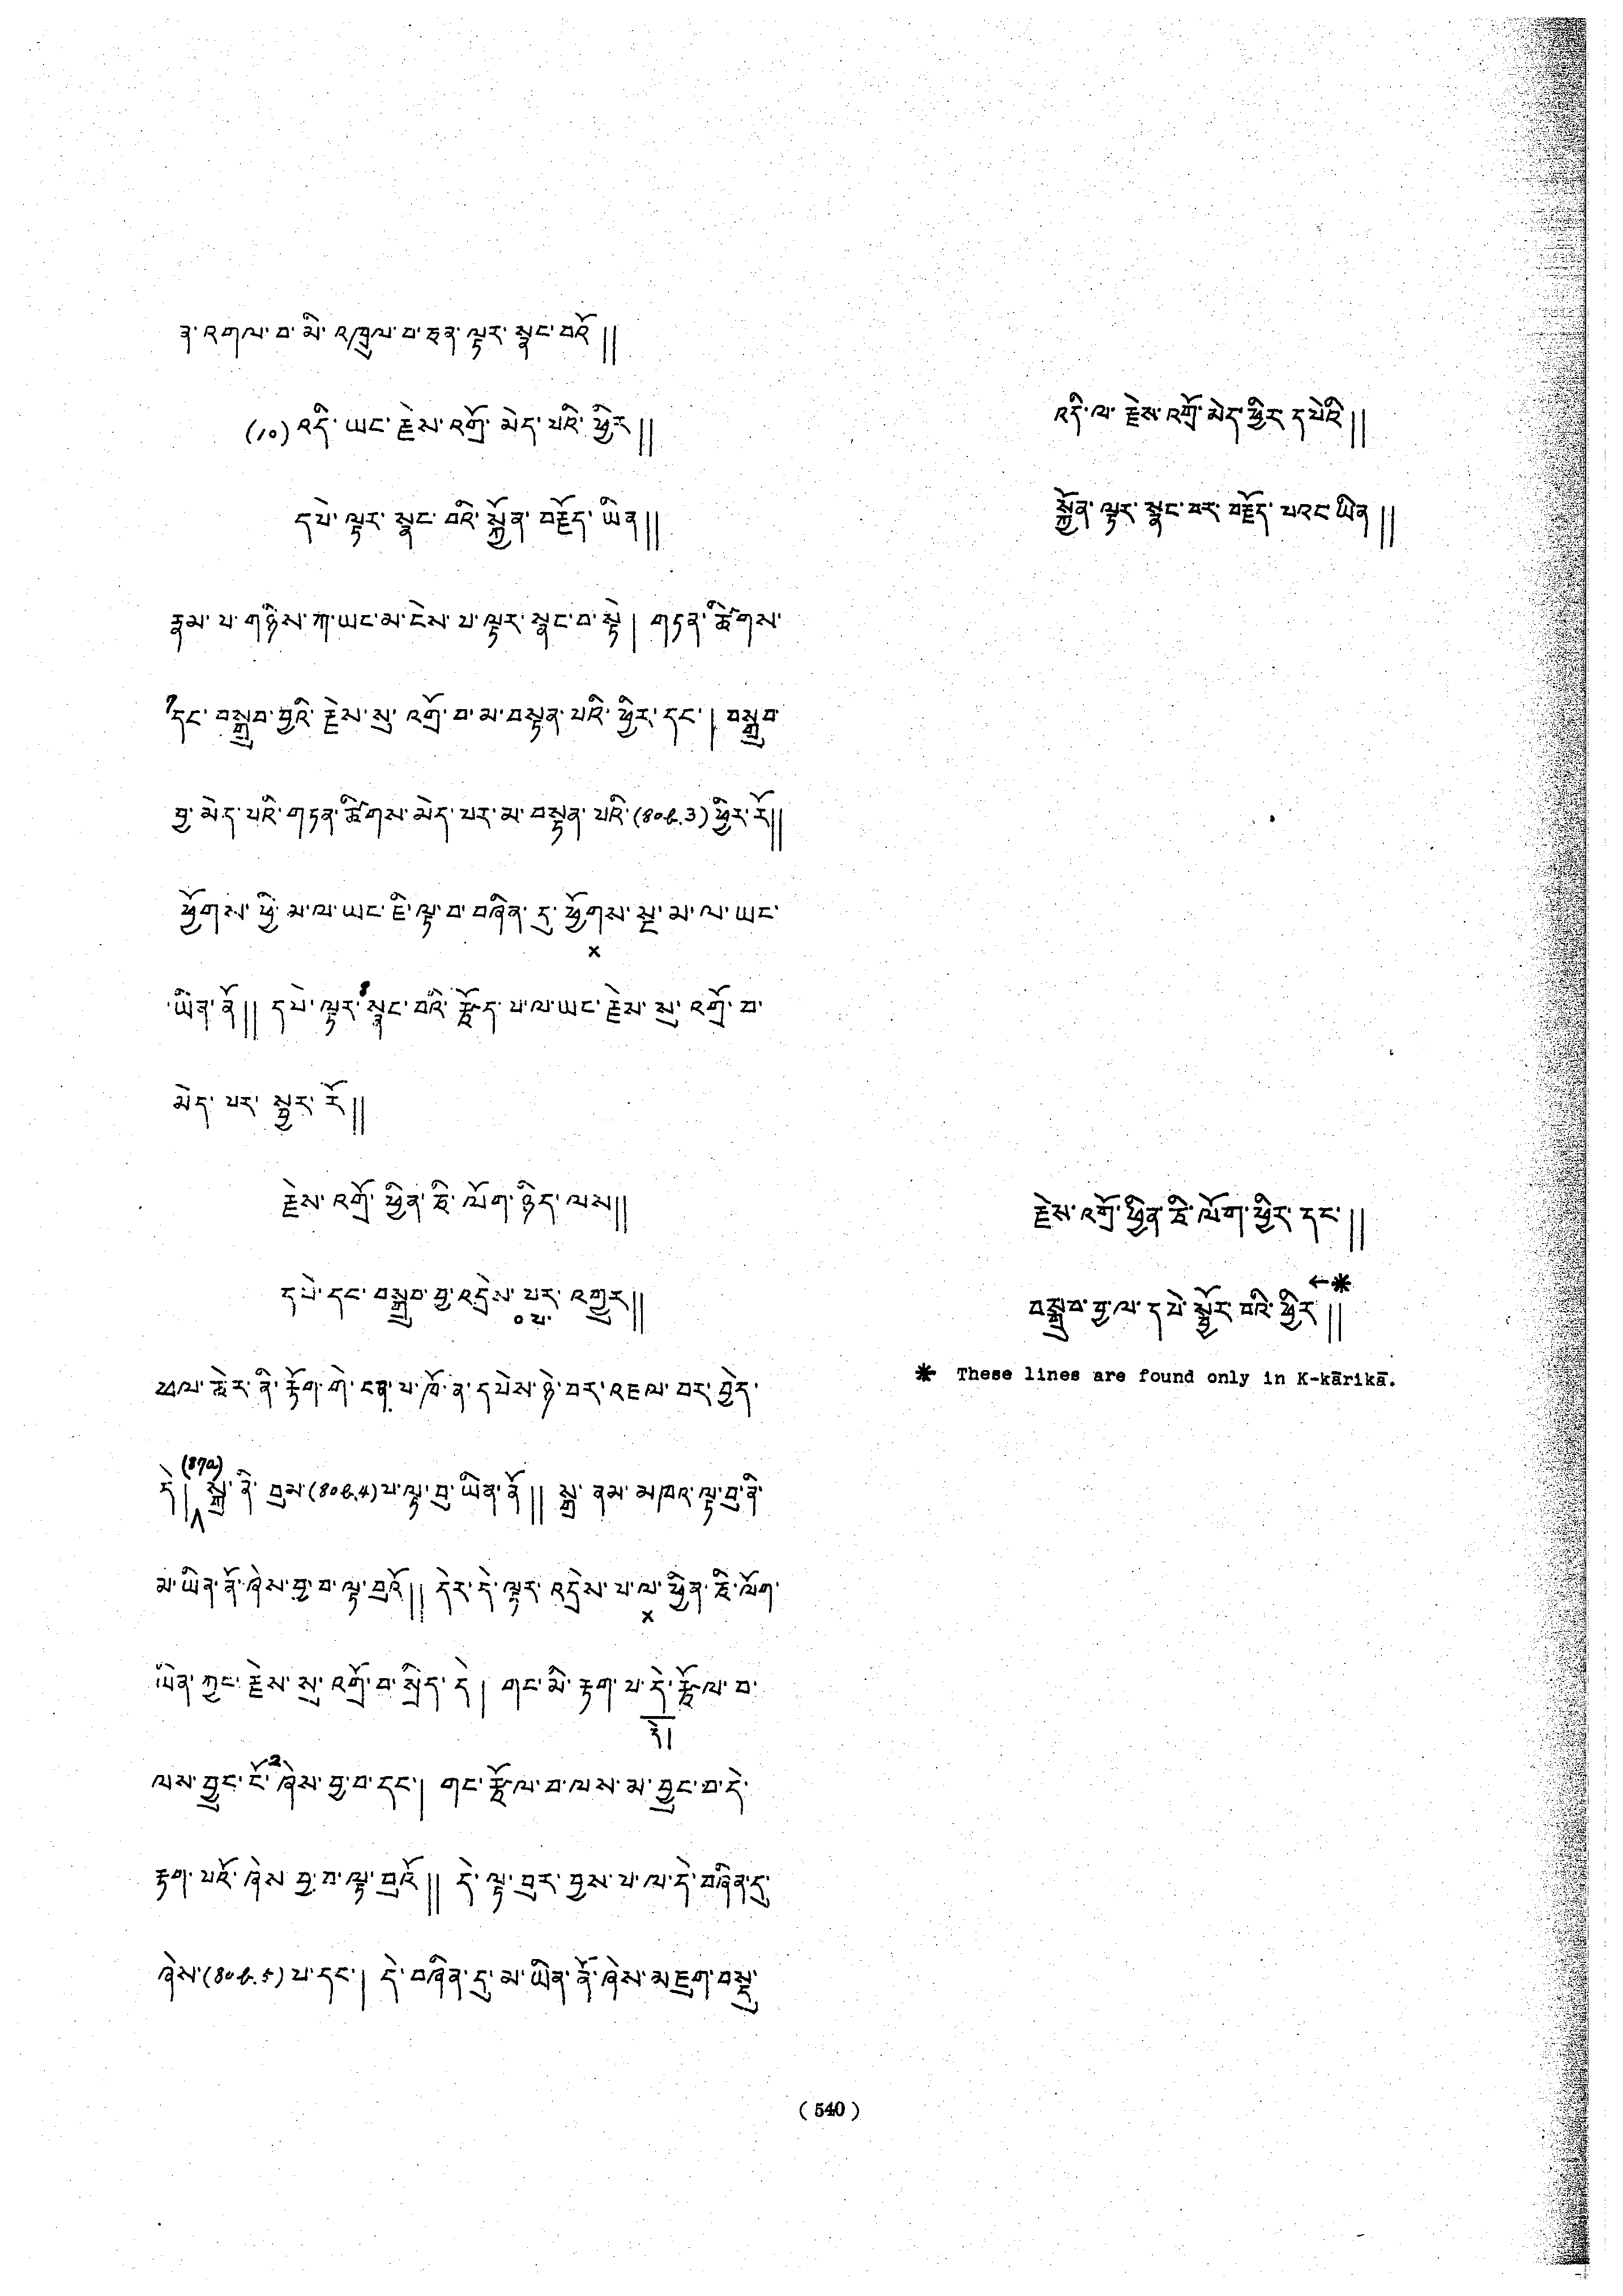 ན་འགལ་བ་མི་འཁྲུལ་བ་ཅན་ལྟར་སྣང་བའོ།།
(10) འདི་ཡང་རྗེས་འགྲོ་མེད་པའི་ཕྱིར།།
དཔེ་ལྟར་སྣང་བའི་སྐྱོན་བརྗོད་ཡིན།།
རྣམ་པ་གཉིས་ཀ་ཡང་མ་ངེས་པ་ལྟར་སྣང་བ་སྟེ། གཏན་ཚིགས་
7དང་བསྒྲུབ་བྱའི་རྗེས་སུ་འགྲོ་བ་མ་བསྟན་པའི་ཕྱིར་དང་། བསྒྲུབ་
བྱ་མེད་པའི་གཏན་ཚིགས་མེད་པར་མ་བསྟན་པའི་(80b.3)ཕྱིར་རོ།།
ཕྱོགས་ཕྱི་མ་ལ་ཡང་ཇི་ལྟ་བ་བཞིན་དུ་ཕྱོགས་སྔ་མ་ལ་ཡང་
x
ཡིན་ནོ།། དཔེ་ལྟར་8སྣང་བའི་རྩོད་པ་ལ་ཡང་རྗེས་སུ་འགྲོ་བ་
མེད་པར་སྦྱར་རོ།།
རྗེས་འགྲོ་ཕྱིན་ཅི་ལོག་ཉིད་ལས།།
དཔེ་དང་བསྒྲུབ་བྱ་འདྲེས་པར་འགྱུར།།
༠པ་
ཕལ་ཆེར་ནི་རྟོག་གེ་ངན་པ་ཁོ་ན་དཔེས་ཉེ་བར་འཇལ་བར་བྱེད་
(87a)
དེ། སྒྲ་ནི་བུམ་(80b.4)པ་ལྟ་བུ་ཡིན་ནོ།། སྒྲ་ནམ་མཁའ་ལྟ་བུ་ནི་
མ་ཡིན་ནོ་ཞེས་བྱ་བ་ལྟ་བུའོ།། དེར་དེ་ལྟར་འདྲེས་པ་ལ་ཕྱིན་ཅི་ལོག་
x
ཡིན་ཀྱང་རྗེས་སུ་འགྲོ་བ་སྲིད་དེ། གང་མི་རྟག་པ་དེ་རྩོལ་བ་
དེ།
ལས་བྱུང་ངོ་2ཞེས་བྱ་བ་དང་། གང་རྩོལ་བ་ལས་མ་བྱུང་བ་དེ་
རྟག་པའོ་ཞེས་བྱ་བ་ལྟ་བུའོ།། དེ་ལྟ་བུར་བྱས་པ་ལ་དེ་བཞིན་དུ་
ཞེས་(80b.5)པ་དང་། དེ་བཞིན་དུ་མ་ཡིན་ནོ་ཞེས་མཇུག་བསྡུ་
འདི་ལ་རྗེས་འགྲོ་མེད་ཕྱིར་དཔེའི།།
སྐྱོན་ལྟར་སྣང་བར་བརྗོད་པའང་ཡིན།།
རྗེས་འགྲོ་ཕྱིན་ཅི་ལོག་ཕྱིར་དང་།།
←*
བསྒྲུབ་བྱ་ལ་དཔེ་སྦྱོར་བའི་ཕྱིར།།
* These lines are found only in K-kārikā.
( 540 )